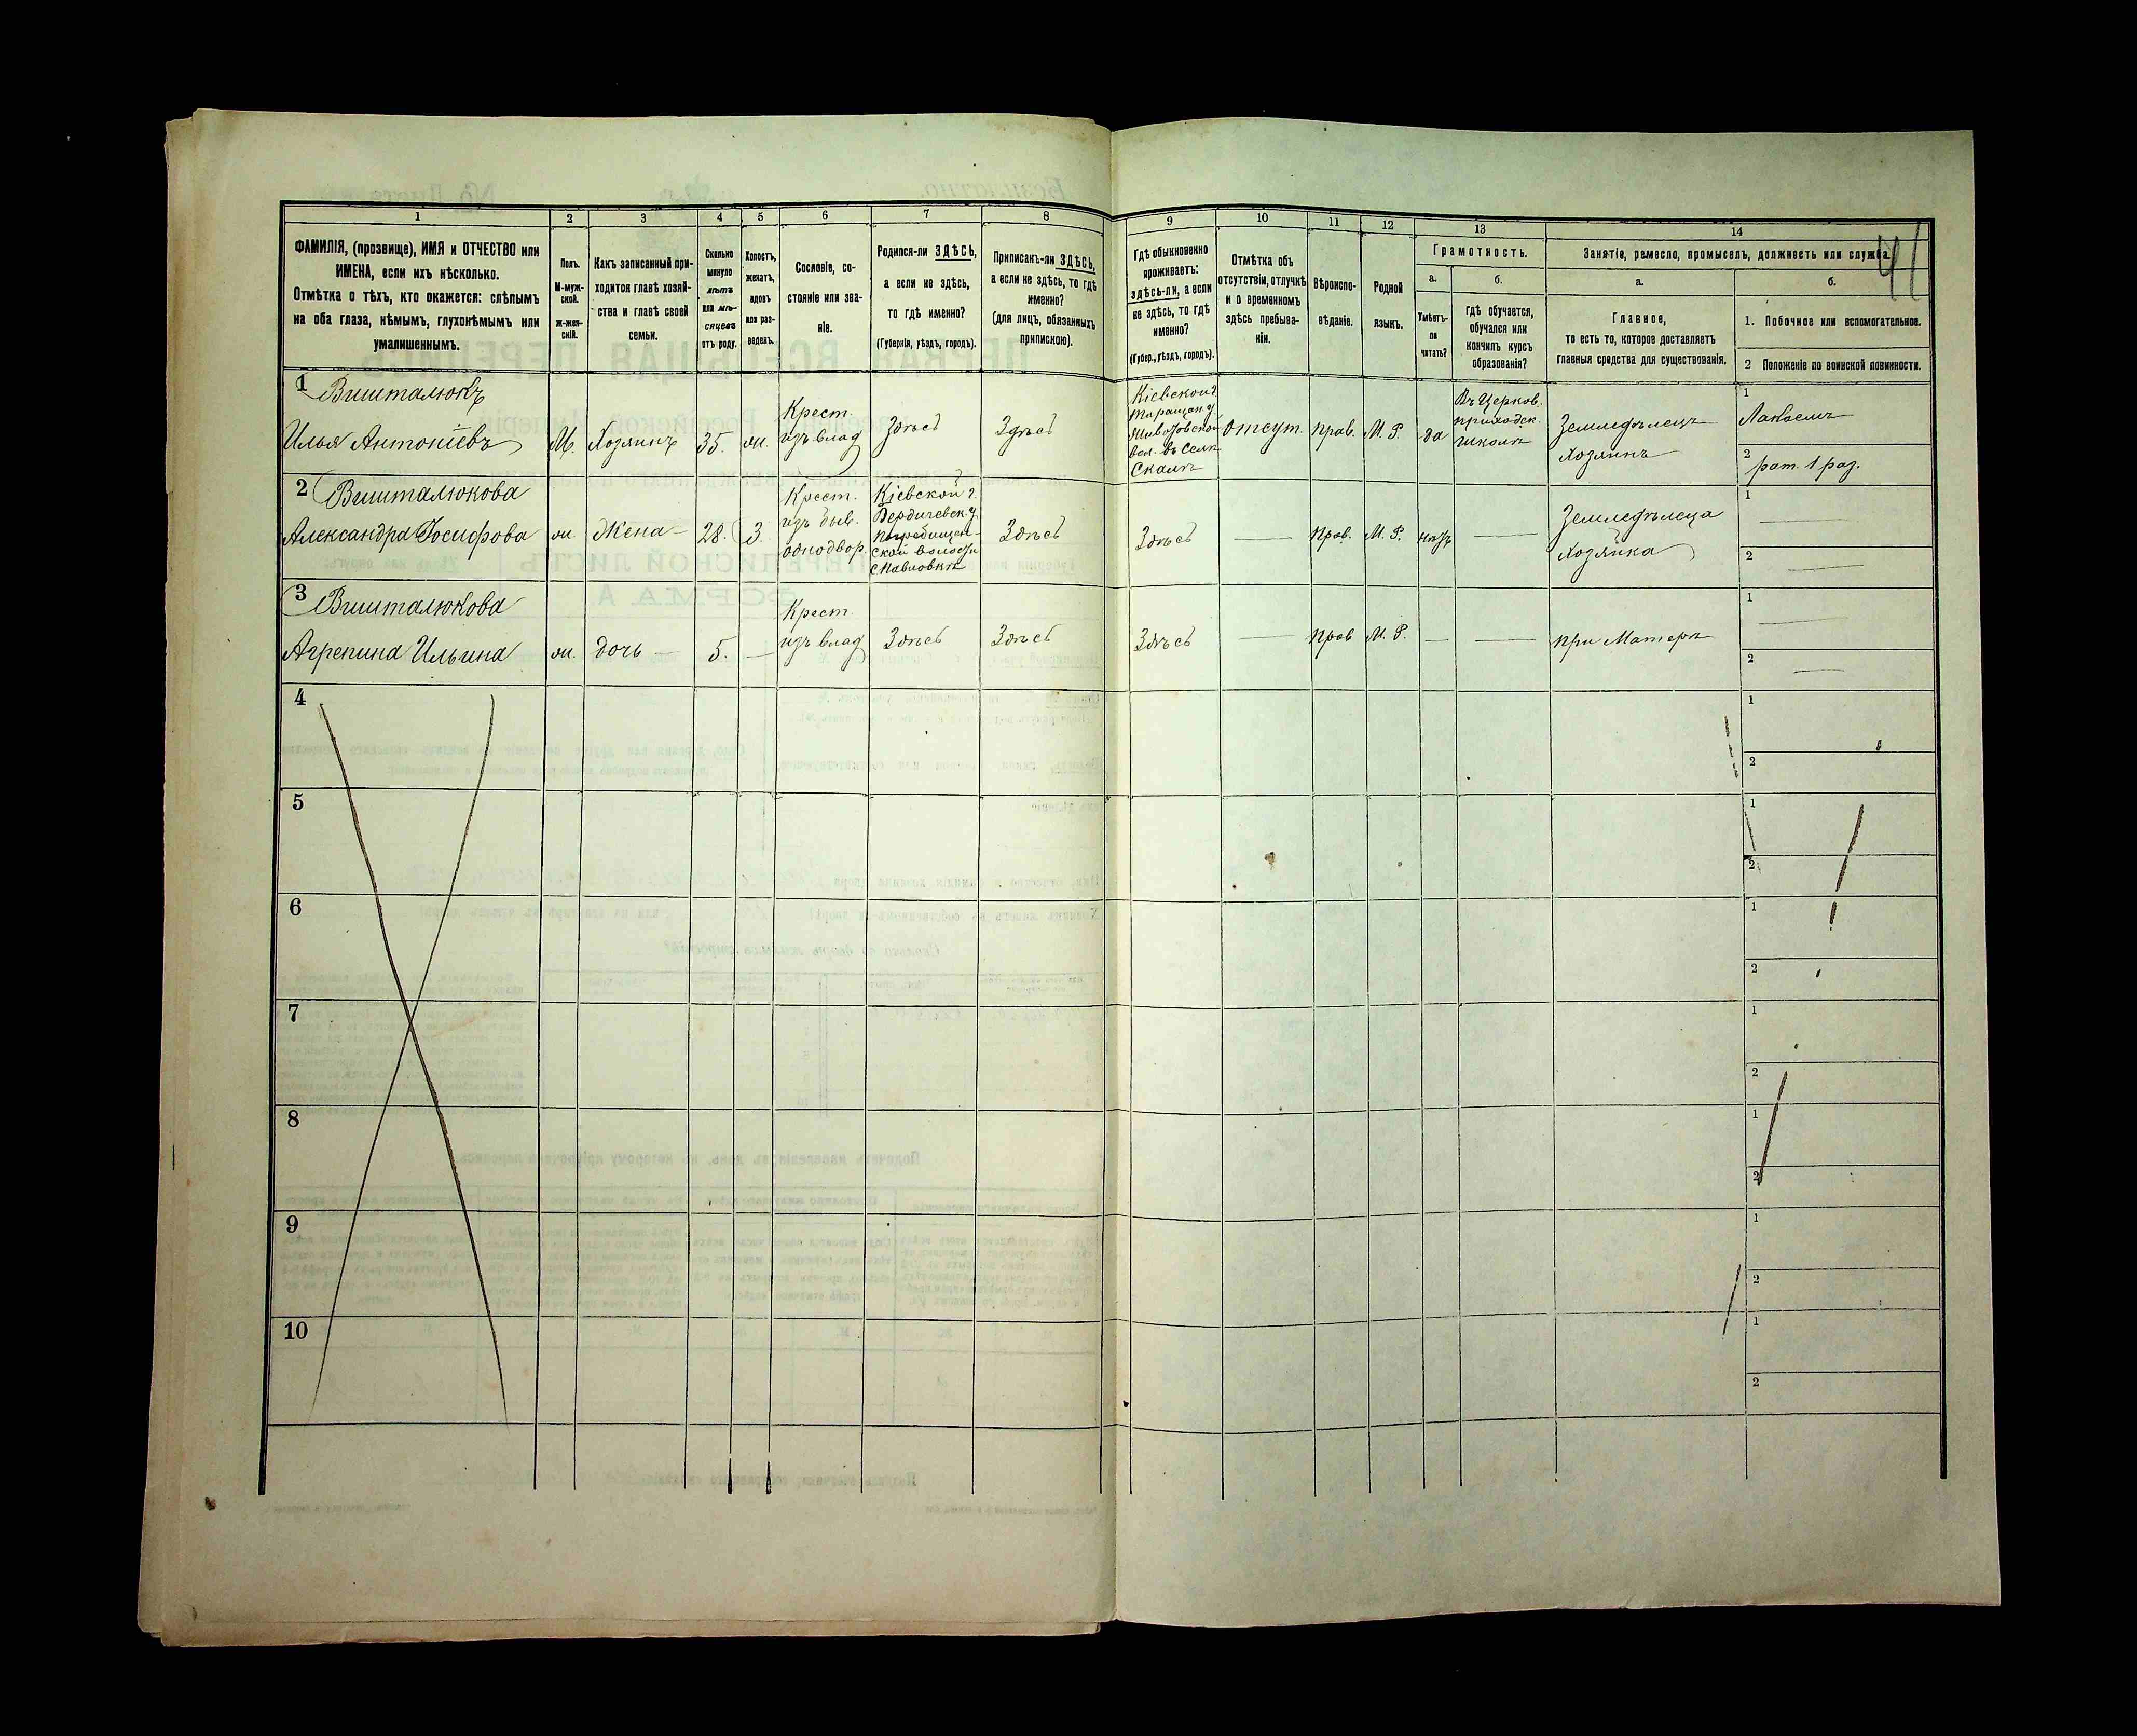 1 2 3 4 5 6 7 8 9 10 11 12 13 14
ФАМИЛІЯ, (прозвище), ИМЯ и ОТЧЕСТВО или
ИМЕНА, если ихъ нѣсколько.
Отмѣтка о тѣхъ, кто окажется: слѣпымъ
на оба глаза, нѣмымъ, глухонѣмымъ или
умалишеннымъ.
Полъ.
М-муж-
ской.
ж-жен-
скій.
Какъ записанный при-
ходится главѣ хозяй-
ства и главѣ своей
семьи.
Сколько
минуло
лѣтъ
или мѣ-
сяцевъ
отъ роду.
Холостъ,
женатъ,
вдовъ
или раз-
веденъ.
Сословіе, со-
стояніе или зва-
ніе.
Родился-ли ЗДѢСЬ,
а если не здѣсь,
то гдѣ именно?
(Губернія, уѣздъ, городъ).
Приписанъ-ли ЗДѢСЬ,
а если не здѣсь, то гдѣ
именно?
(для лицъ, обязанныхъ
припискою).
Гдѣ обыкновенно
проживаетъ:
здѣсь-ли, а если
не здѣсь, то гдѣ
именно?
(Губер., уѣздъ, городъ).
Отмѣтка объ
отсутствіи, отлучкѣ
и о временномъ
здѣсь пребыва-
ніи.
Вѣроиспо-
вѣданіе.
Родной
языкъ.
Грамотность.
а.
Умѣетъ-
ли
читать?
б.
Гдѣ обучается,
обучался или
кончилъ курсъ
образованія?
Занятіе, ремесло, промыселъ, должность или служба.
41
а.
Главное,
то есть то, которое доставляетъ
главныя средства для существованія.
б.
1. Побочное или вспомогательное.
2 Положеніе по воинской повинности.
1 Вишталюкъ
Илья Антоніевъ
М.
Хозяинъ
35.
ж.
Крест.
изъ влад
Здѣсь
Здѣсь
Кіевской г.
Таращан. у
вол. въ Селѣ
отсут.
прав.
М. Р.
да
Въ Церков.
приходск.
школѣ
Земледѣлецъ
Хозяинъ
1
2 рат. 1 раз.
2 Вишталюкова
Александра Іосифова
ж.
Жена
28.
З.
Крест.
изъ быв.
однодвор.
Кіевской г.
Бердичевск. у
ской волости
с Павловкѣ
Здѣсь
Здѣсь
прав.
М. Р.
нѣтъ
Земледѣлеца
Хозяйка
1
2
3 Вишталюкова
Агрепина Ильина
ж.
дочь
5.
Крест.
изъ влад
Здѣсь
Здѣсь
Здѣсь
прав
М. Р.
при Матерѣ
1
2
4
1
2
5
1
2
6
1
2
7
1
2
8
1
2
9
1
2
10
1
2